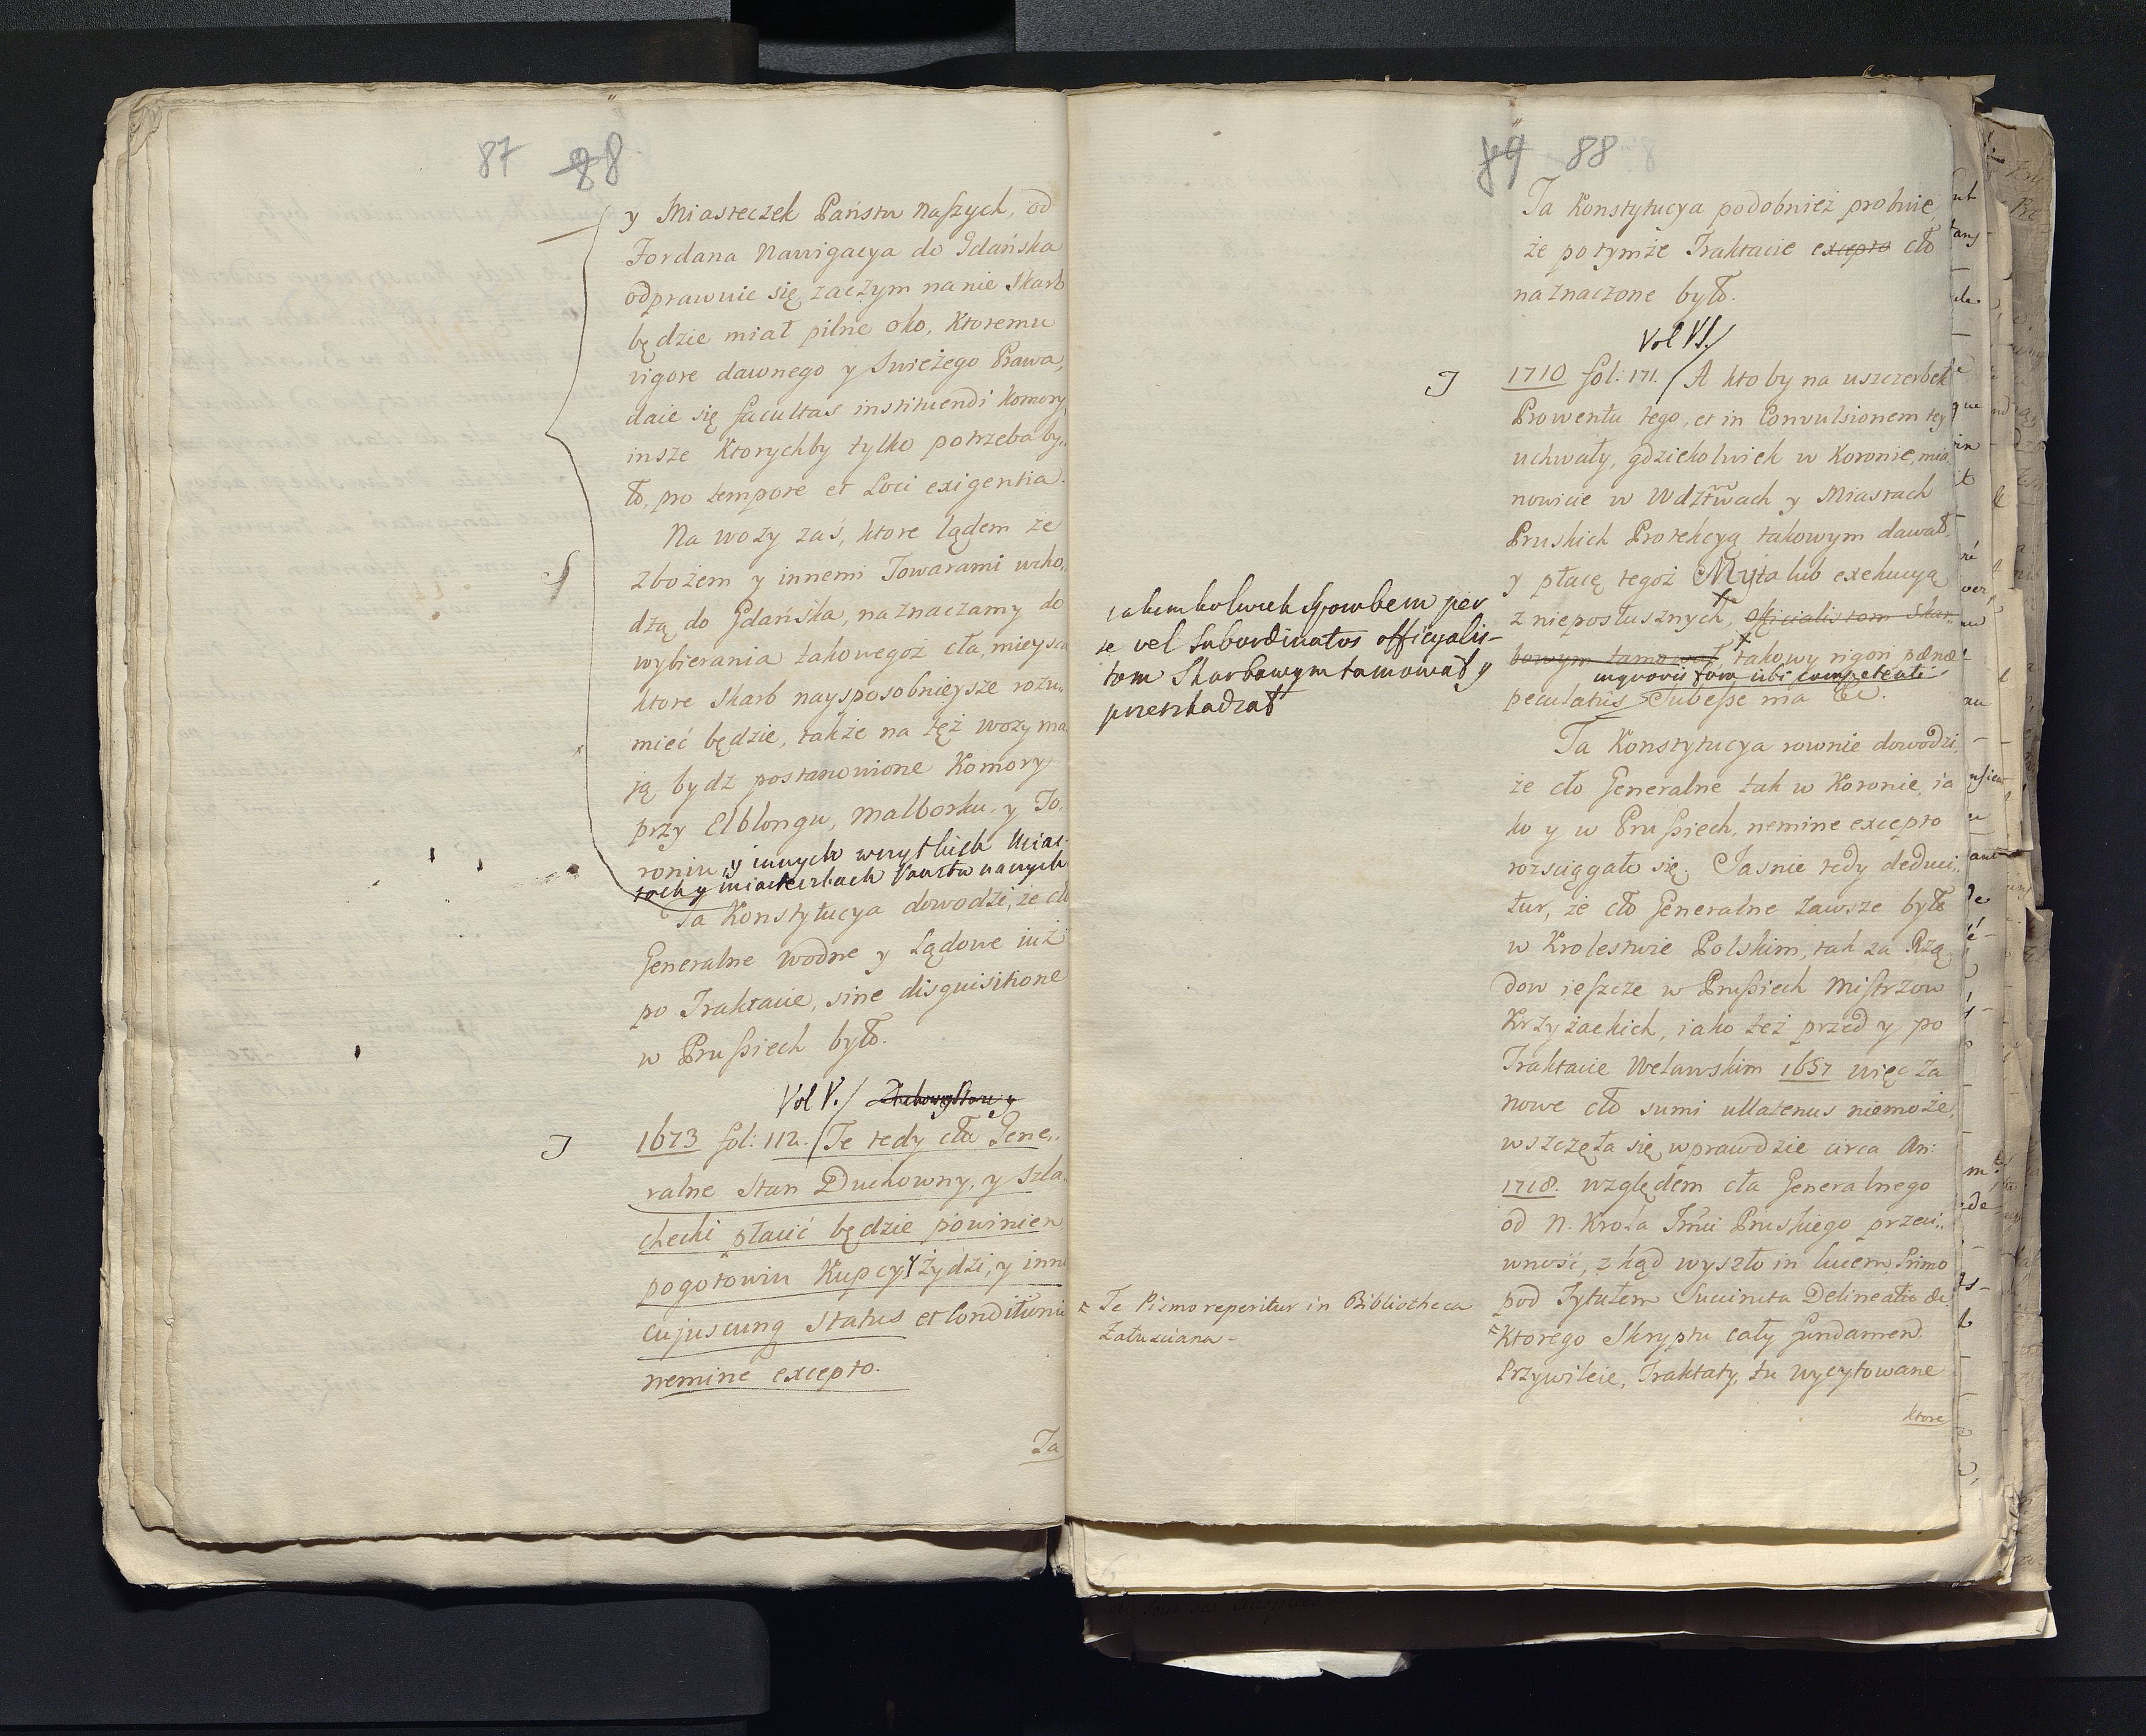 87 88
y Miasteczek Państw Naszych, od
Fordana Nawigacya do Gdańska
odprawuie się, zaczym na nie Skarb
będzie miał pilne oko, Ktoremu
vigore dawnego y Swieżego Prawa,
daie się facultas instituendi Komory
insze Ktorychby tylko potrzeba by„
ło, pro tempore et Loci exigentia.
Na wozy zaś, ktore lądem ze
Zbożem y innemi Towarami wcho„
dzą do Gdańska, naznaczamy do
wybierania takowegoż cła, mieysca
ktore Skarb naysposobnieysze rozu„
mieć będzie, także na też wozy ma
ią bydz postanowione Komory
przy Elblongu, Malborku, y To„
roniu, y innych wszytkich Mias-
tach y miasteczkach Panstw naszych
Ta Konstytucya dowodzi, że cło
Generalne wodne y Lądowe iuż
po Traktacie, sine disquisitione
w Prußiech było.
Vol V./
J 1673 fol: 112. / Te tedy cła Gene„
ralne Stan Duchowny, y Szla„
checki płacić będzie powinien
pogotowiu Kupcy y Żydzi, y inni
cujuscunq Status et Conditionis
nemine excepto.
Ta
89 88
Ta Konstytucya podobnież probuie,
że po tymże Traktacie excepto cło
naznaczone było.
Vol VI./
J 1710 fol: 171. / A kto by na uszczerbek
Prowentu tego, et in Convulsionem tey
uchwały, gdziekolwiek w Koronie, mia„
nowicie w Wdztwach y Miastach
Pruskich Protekcyą takowym dawał,
y płacę tegoż Myta lub exekucyą
z nieposłusznych, Officialistom Skar„
bowym tamował, takowy rigori pœnæ
inquovis foro ubi competenti
peculatus Subeße ma &c.
jakimkolwiek sposobem per
se vel Subordinatos officyalis-
tom Skarbowym tamował y
przeszkadzał
Ta Konstytucya rownie dowodzi,
że cło Generalne tak w Koronie, ia
ko y w Prußiech, nemine excepto
rozsciągało się. Jasnie tedy deduci„
tur, że cło Generalne zawsze było
w Krolestwie Polskim, tak za Rzą„
dow ieszcze w Prußiech Mistrzow
Krzyżackich, iako też przed y po
Traktacie Welawskim 1657 więc za
nowe cło sumi ullatenus niemoże,
wszczęła się wprawdzie circa An:
1718. względem cła Generalnego
od N. Krola Jmci Pruskiego przeci„
wność, zkąd wyszło in lucem Pismo
pod Tytułem Succincta Delineatio &c
Ktorego Skryptu cały fundament
Przywileie, Traktaty, tu wycytowane
Te Pismo reperitur in Bibliotheca
Załusciana -
Ktore